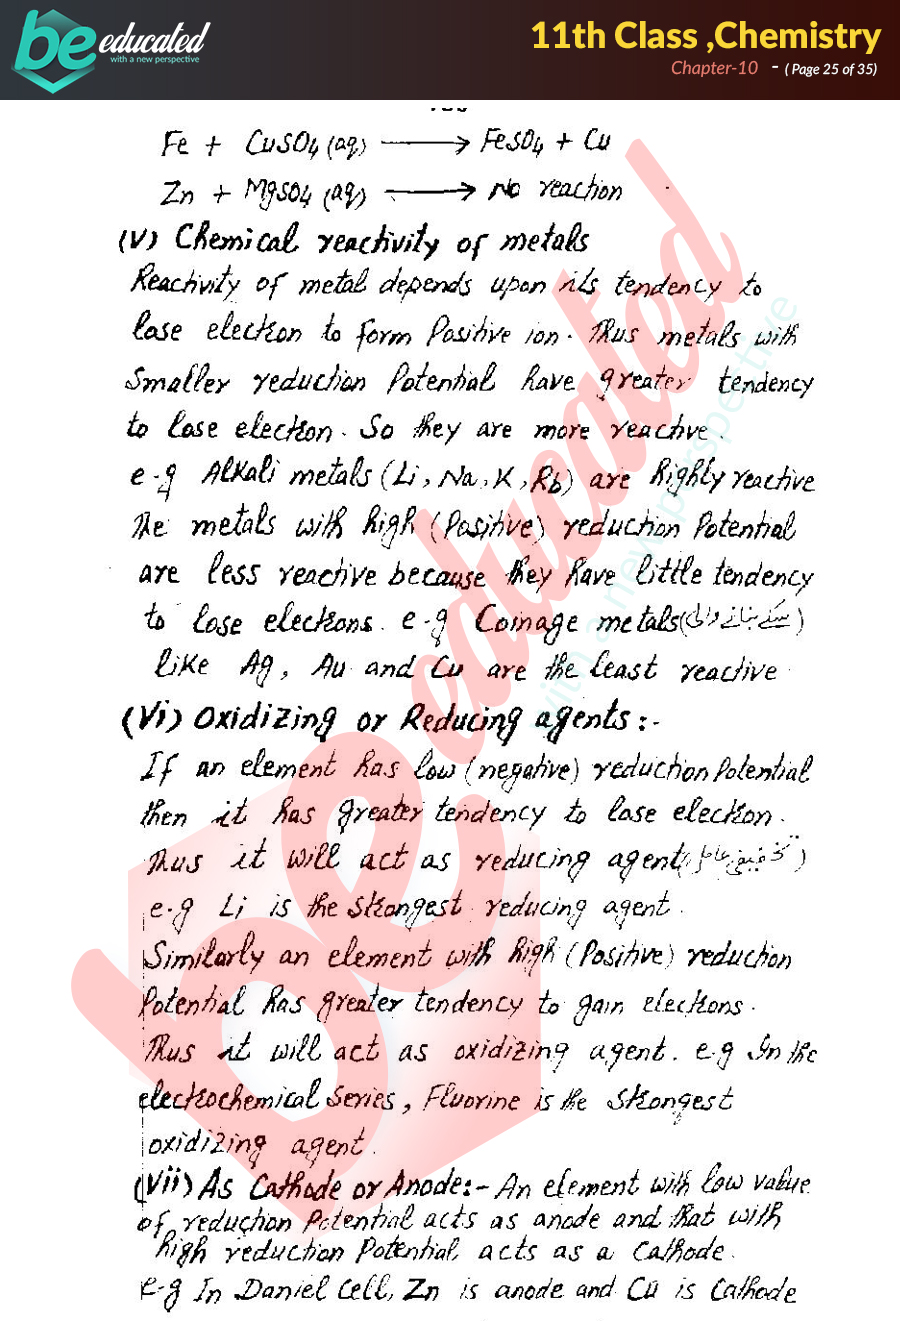 be educated
with a new perspective
11th Class ,Chemistry
Chapter-10 - ( Page 25 of 35)
Fe + CuSO4 (aq) ⟶ FeSO4 + Cu
Zn + MgSO4 (aq) ⟶ No reaction
(V) Chemical reactivity of metals
Reactivity of metal depends upon its tendency to
lose electron to form Positive ion. Thus metals with
Smaller reduction Potential have greater tendency
to lose electron. So they are more reactive.
e.g Alkali metals (Li, Na, K, Rb) are highly reactive
The metals with high (Positive) reduction Potential
are less reactive because they have little tendency
to lose electrons. e.g Coinage metals (سکے بنانے والی)
like Ag, Au and Cu are the least reactive.
(Vi) Oxidizing or Reducing agents:-
If an element has low (negative) reduction Potential
then it has greater tendency to lose electron.
Thus it will act as reducing agent (تخفیفی عامل)
e.g Li is the strongest reducing agent.
Similarly an element with high (Positive) reduction
Potential has greater tendency to gain electrons.
Thus it will act as oxidizing agent. e.g In the
electrochemical Series, Fluorine is the strongest
oxidizing agent.
(Vii) As Cathode or Anode:- An element with low value
of reduction Potential acts as anode and that with
high reduction Potential acts as a cathode.
e.g In Daniel Cell, Zn is anode and Cu is Cathode
be educated
with a new perspective